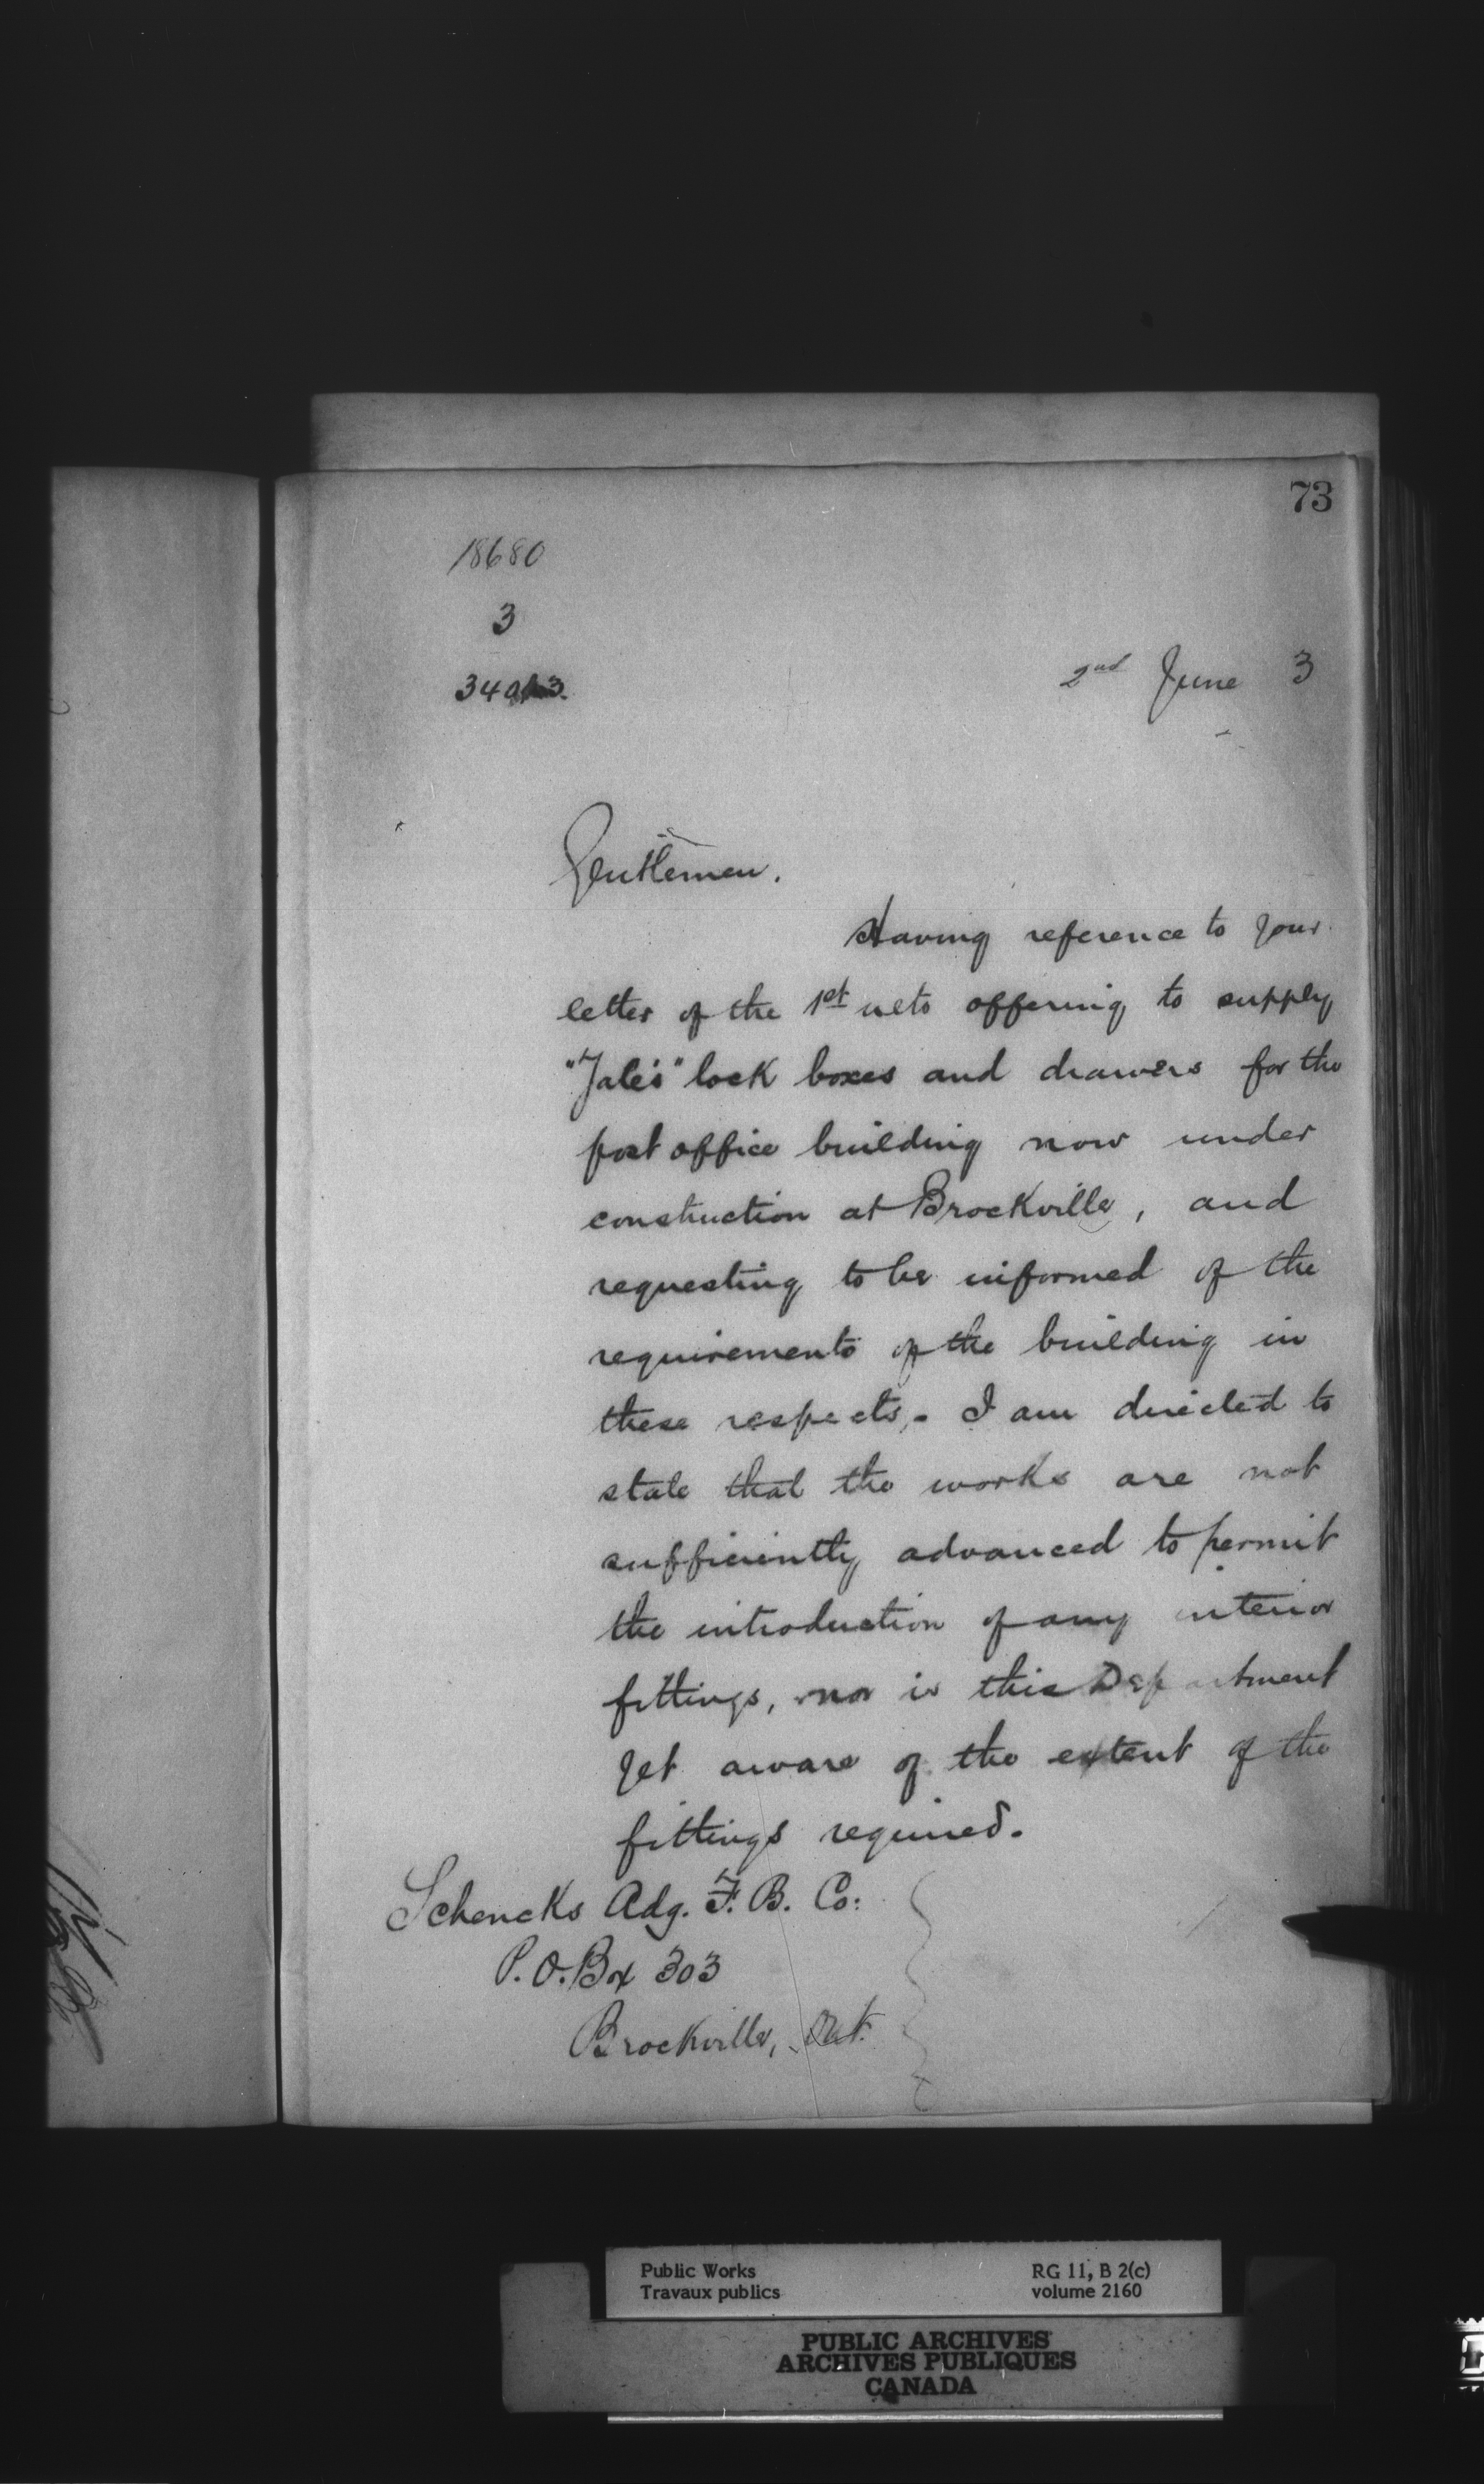 73
18680
3
2nd June 3
Gentlemen.
Having reference to your
letter of the 1st ulto offering to supply
"Yale's" lock boxes and drawers for the
post office building now under
construction at Brockville, and
requesting to be informed of the
requirements of the building in
these respects,- I am directed to
state that the works are not
sufficiently advanced to permit
the introduction of any interior
fittings, nor is this Department
yet aware of the extent of the
fittings required.
Schencks Adg. F. B. Co:
P.O. Box 303
Brockville, Ont.
Public Works
Travaux publics
RG 11, B 2(c)
volume 2160
PUBLIC ARCHIVES
ARCHIVES PUBLIQUES
CANADA